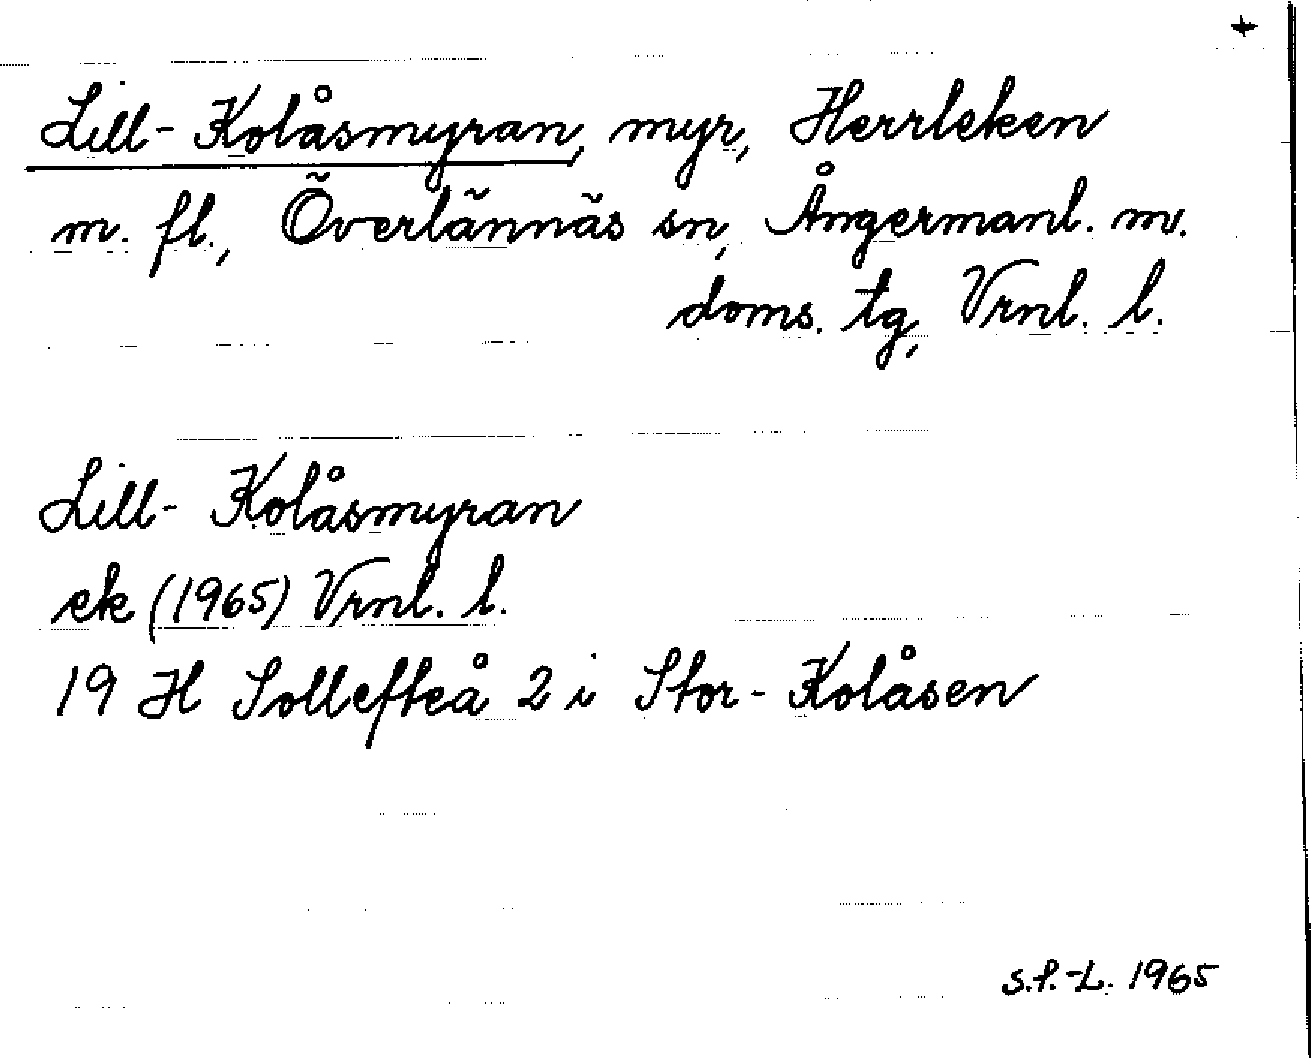 +
Lill-Kolåsmyran, myr, Herrleken
m. fl., Överlännäs sn, Ångermanl. mv.
doms. tg, Vrnl. l.
Lill-Kolåsmyran
ek (1965) Vrnl. l.
19 H Sollefteå 2 i Stor-Kolåsen
S.P.-L. 1965